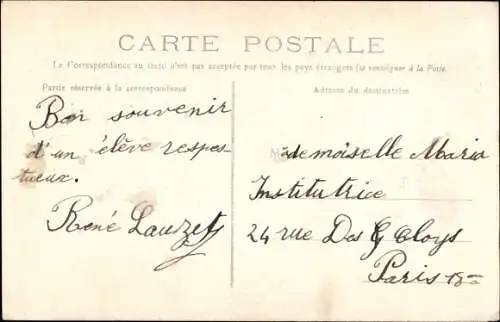 CARTE POSTALE
La Correspondance au recto n'est pas acceptée par tous les pays étrangers (se renseigner à la Poste
Partie réservée à la correspondance
Adresse du destinataire
Bon souvenir
d'un élève respec-
tueux.
René Lauzet
Mademoiselle Maria
Institutrice
24 rue Des G Cloys
Paris 18